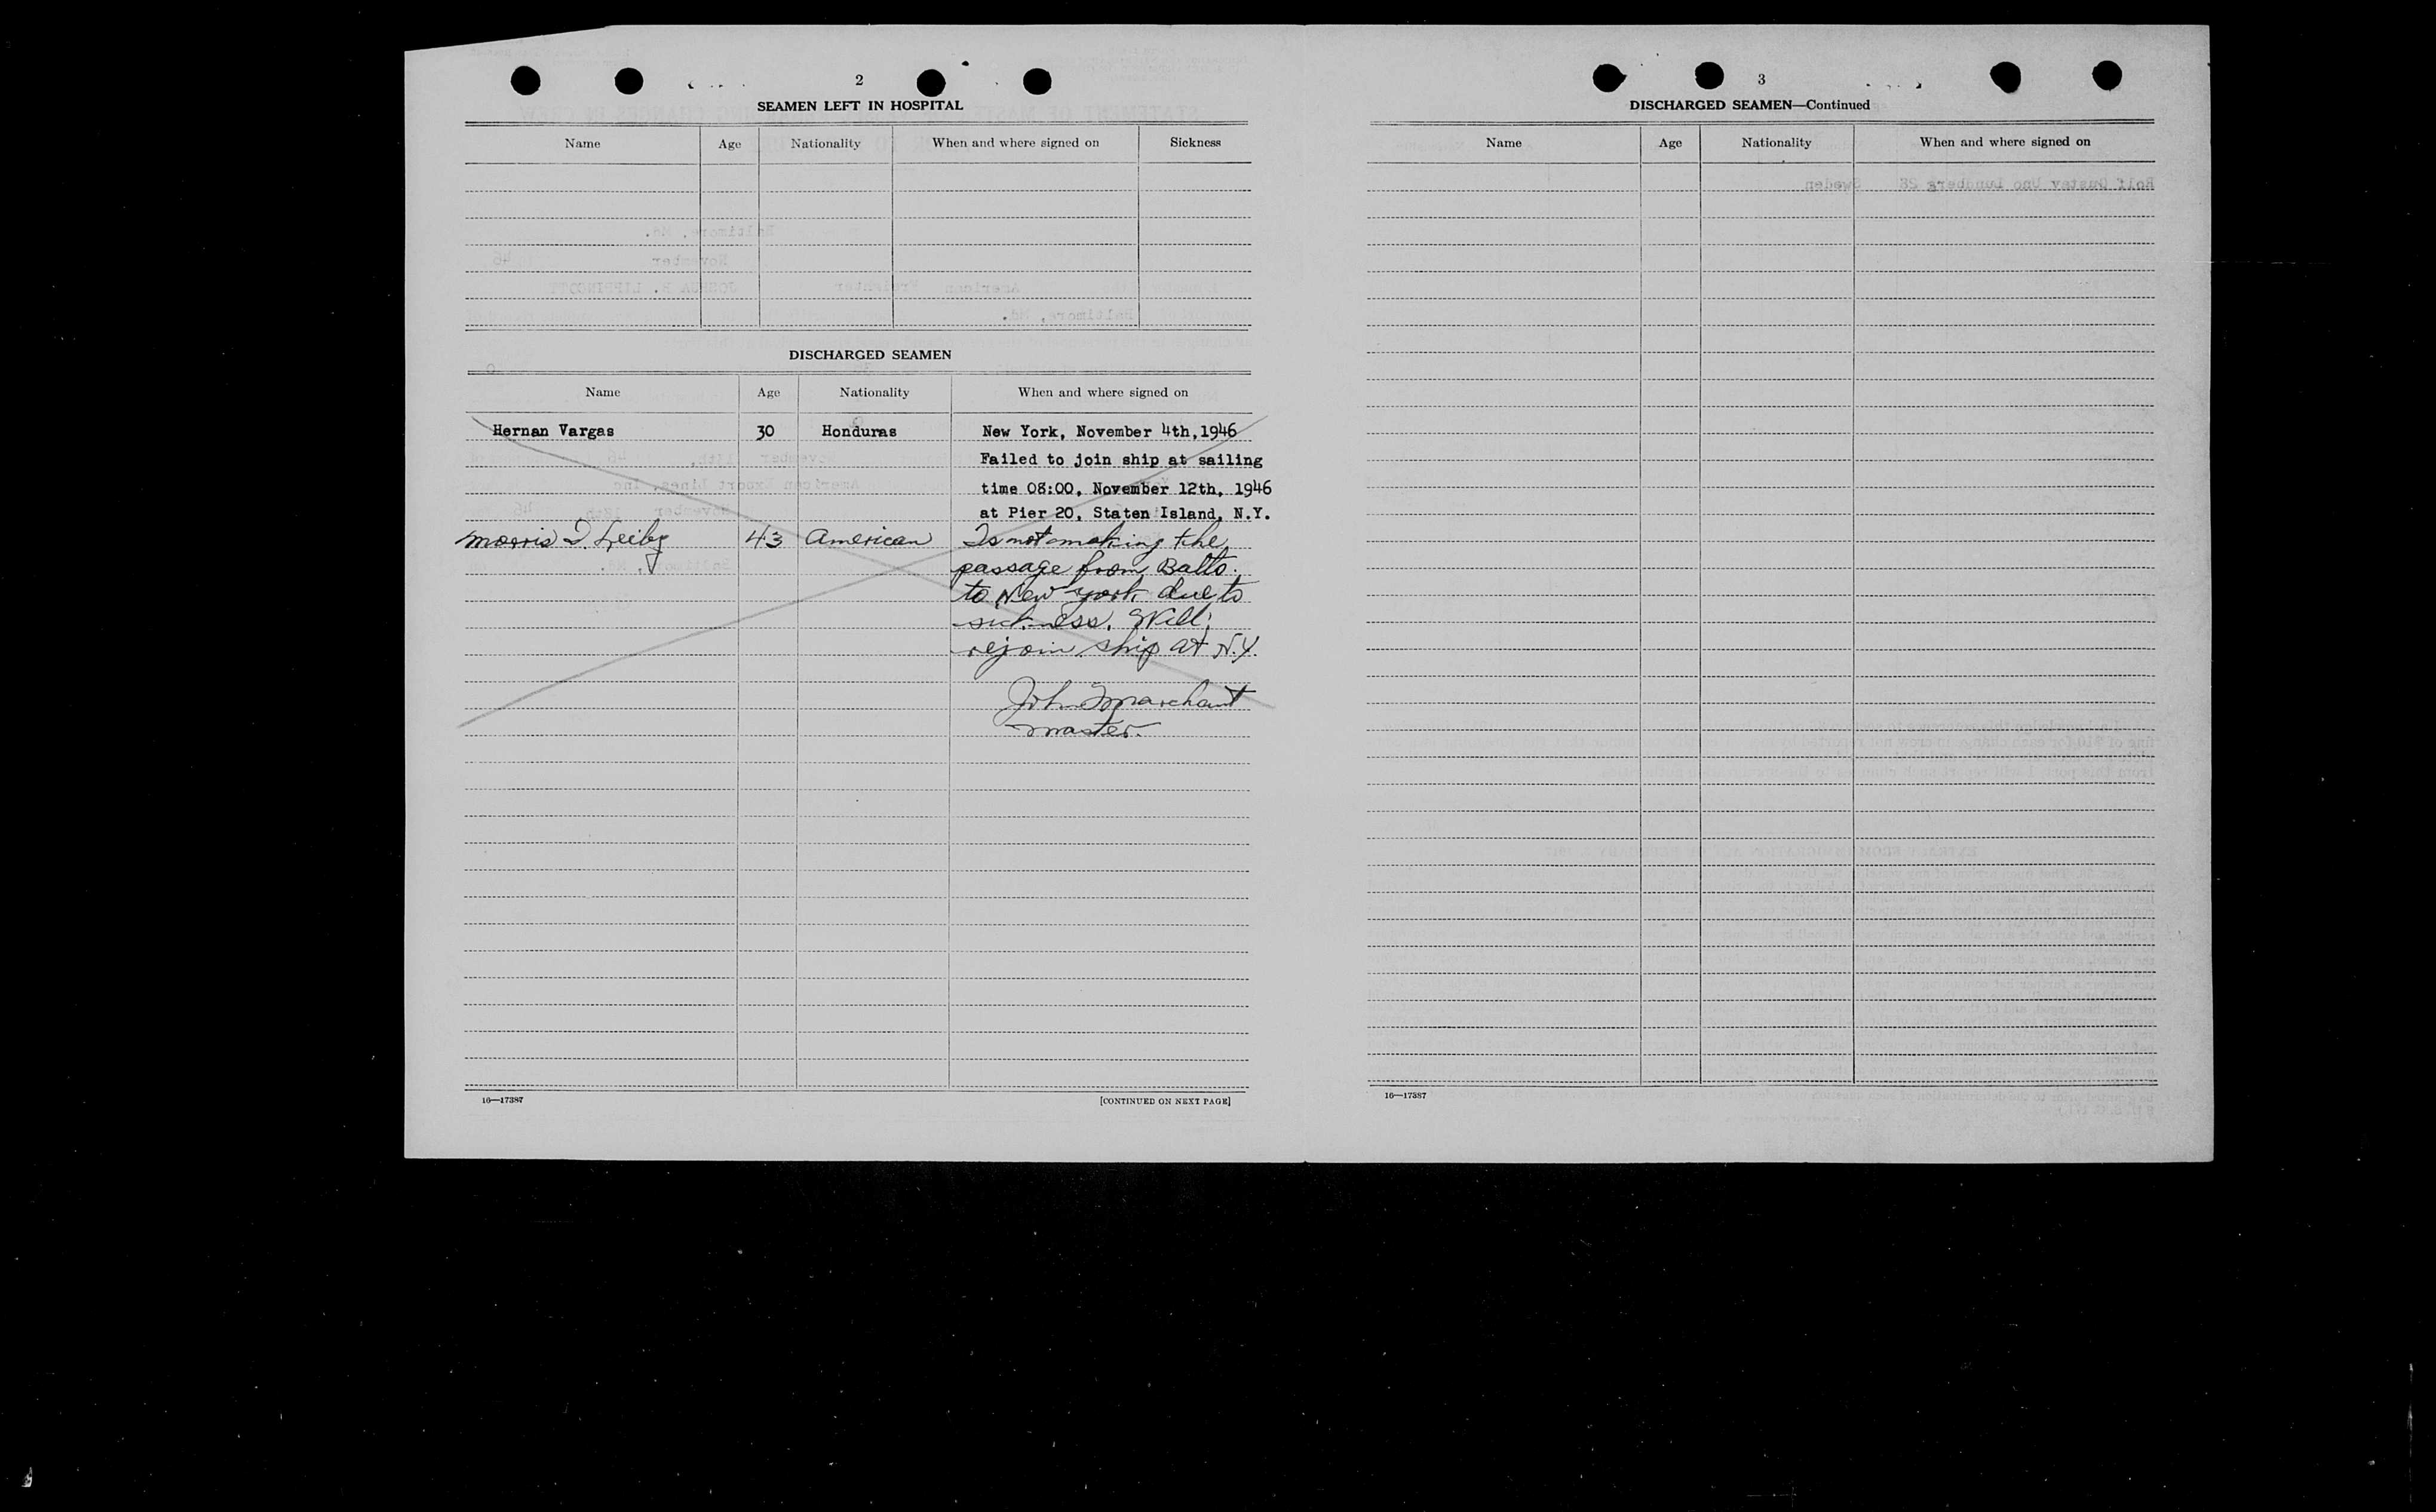 2
SEAMEN LEFT IN HOSPITAL
Name Age Nationality When and where signed on Sickness
DISCHARGED SEAMEN
Name Age Nationality When and where signed on
Hernan Vargas 30 Honduras New York, November 4th, 1946
Failed to join ship at sailing
time 08:00, November 12th, 1946
at Pier 20, Staten Island, N.Y.
Morris D. Leiby 43 American Is not making the
passage from Balto.
to New York due to
sickness. Will
rejoin ship at N.Y.
John Marchant
master.
16—17387 [CONTINUED ON NEXT PAGE]
3
DISCHARGED SEAMEN—Continued
Name Age Nationality When and where signed on
Rolf Gustav Uno Lundberg 28 Sweden
16—17387